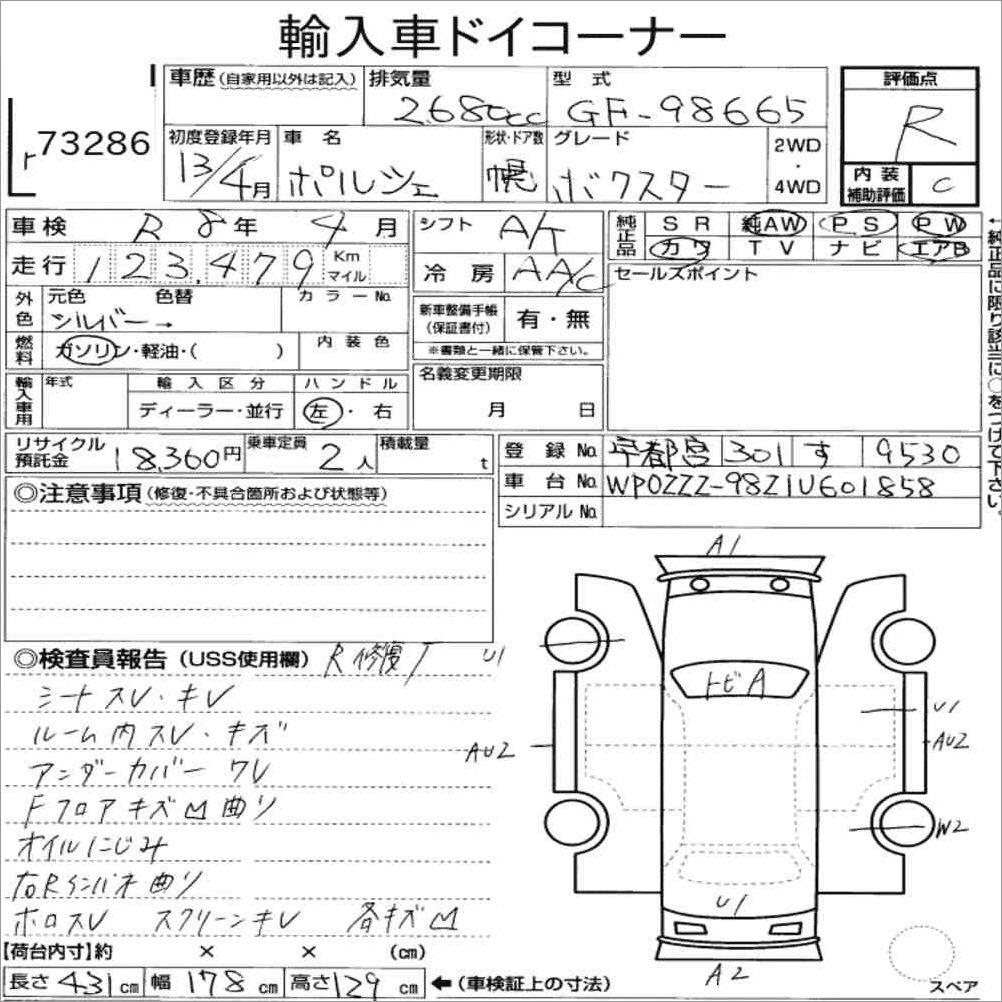 輸入車ドイコーナー
73286
車歴(自家用以外は記入) 排気量 2680cc 型式 GF-98665
評価点 R
初度登録年月 13/4月 車名 ポルシェ 形状・ドア数 幌 グレード ボクスター 2WD・4WD
内装補助評価 C
車検 R8年4月 シフト A/T 純正品 SR 純AW PS PW
走行 123,479 Km マイル 冷房 AA/C カワ TV ナビ エアB
外色 元色 シルバー→ 色替 カラーNo. セールスポイント
新車整備手帳(保証書付) 有・無
※書類と一緒に保管下さい。
燃料 ガソリン・軽油・( ) 内装色
輸入車用 年式 輸入区分 ディーラー・並行 ハンドル 左・右
名義変更期限 月 日
←純正品に限り該当に○をつけて下さい。
リサイクル預託金 18,360円 乗車定員 2人 積載量 t
登録No. 宇都宮 301 す 9530
車台No. WP0ZZZ-98Z1U601858
シリアルNo.
◎注意事項(修復・不具合箇所および状態等)
◎検査員報告(USS使用欄) R修復了
シートスレ・キレ
ルーム内スレ・キズ
アンダーカバーワレ
Fフロアキズ凹曲り
オイルにじみ
右Rインパネ曲り
ホロスレ スクリーンキレ 各キズ凹
A1
U1
トビA
U1
AU2
AU2
W2
U1
A2
スペア
【荷台内寸】約 × × (cm)
長さ431cm 幅178cm 高さ129cm ←(車検証上の寸法)